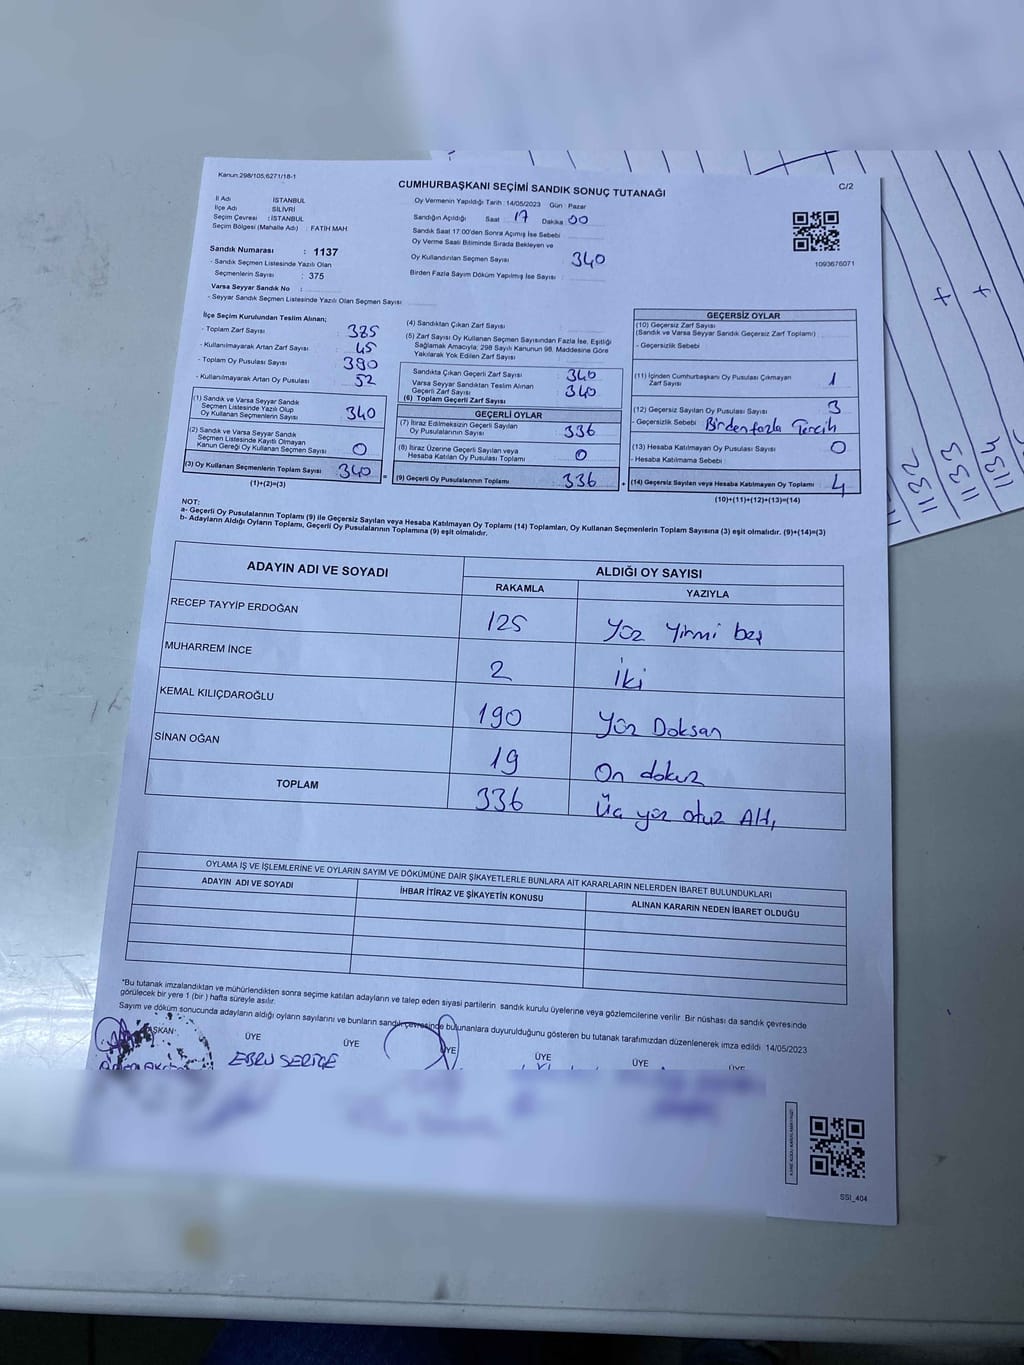 Kanun:298/105,6271/18-1
CUMHURBAŞKANI SEÇİMİ SANDIK SONUÇ TUTANAĞI
C/2
İl Adı İSTANBUL
İlçe Adı SİLİVRİ
Seçim Çevresi : İSTANBUL
Seçim Bölgesi (Mahalle Adı) : FATİH MAH.
Sandık Numarası : 1137
- Sandık Seçmen Listesinde Yazılı Olan
Seçmenlerin Sayısı : 375
Varsa Seyyar Sandık No :
- Seyyar Sandık Seçmen Listesinde Yazılı Olan Seçmen Sayısı :
Oy Vermenin Yapıldığı Tarih : 14/05/2023 Gün : Pazar
Sandığın Açıldığı Saat 17 Dakika 00
Sandık Saat 17:00'den Sonra Açımış İse Sebebi
Oy Verme Saati Bitiminde Sırada Bekleyen ve
Oy Kullandırılan Seçmen Sayısı 340
Birden Fazla Sayım Döküm Yapılmış İse Sayısı :
1093676071
İlçe Seçim Kurulundan Teslim Alınan;
- Toplam Zarf Sayısı : 385
- Kullanılmayarak Artan Zarf Sayısı : 45
- Toplam Oy Pusulası Sayısı : 390
- Kullanılmayarak Artan Oy Pusulası : 52
(1) Sandık ve Varsa Seyyar Sandık
Seçmen Listesinde Yazılı Olup
Oy Kullanan Seçmenlerin Sayısı : 340
(2) Sandık ve Varsa Seyyar Sandık
Seçmen Listesinde Kayıtlı Olmayan
Kanun Gereği Oy Kullanan Seçmen Sayısı : 0
(3) Oy Kullanan Seçmenlerin Toplam Sayısı : 340
(1)+(2)=(3)
(4) Sandıktan Çıkan Zarf Sayısı :
(5) Zarf Sayısı Oy Kullanan Seçmen Sayısından Fazla İse, Eşitliği
Sağlamak Amacıyla; 298 Sayılı Kanunun 98. Maddesine Göre
Yakılarak Yok Edilen Zarf Sayısı :
Sandıkta Çıkan Geçerli Zarf Sayısı : 340
Varsa Seyyar Sandıktan Teslim Alınan
Geçerli Zarf Sayısı : 340
(6) Toplam Geçerli Zarf Sayısı :
GEÇERLİ OYLAR
(7) İtiraz Edilmeksizin Geçerli Sayılan
Oy Pusulalarının Sayısı : 336
(8) İtiraz Üzerine Geçerli Sayılan veya
Hesaba Katılan Oy Pusulası Toplamı : 0
(9) Geçerli Oy Pusulalarının Toplamı : 336
GEÇERSİZ OYLAR
(10) Geçersiz Zarf Sayısı
(Sandık ve Varsa Seyyar Sandık Geçersiz Zarf Toplamı) :
- Geçersizlik Sebebi :
(11) İçinden Cumhurbaşkanı Oy Pusulası Çıkmayan
Zarf Sayısı : 1
(12) Geçersiz Sayılan Oy Pusulası Sayısı : 3
- Geçersizlik Sebebi : Birden fazla Tercih
(13) Hesaba Katılmayan Oy Pusulası Sayısı : 0
- Hesaba Katılmama Sebebi :
(14) Geçersiz Sayılan veya Hesaba Katılmayan Oy Toplamı : 4
(10)+(11)+(12)+(13)=(14)
NOT:
a- Geçerli Oy Pusulalarının Toplamı (9) ile Geçersiz Sayılan veya Hesaba Katılmayan Oy Toplamı (14) Toplamları, Oy Kullanan Seçmenlerin Toplam Sayısına (3) eşit olmalıdır. (9)+(14)=(3)
b- Adayların Aldığı Oyların Toplamı, Geçerli Oy Pusulalarının Toplamına (9) eşit olmalıdır.
ADAYIN ADI VE SOYADI ALDIĞI OY SAYISI
RAKAMLA YAZIYLA
RECEP TAYYİP ERDOĞAN 125 Yüz Yirmi beş
MUHARREM İNCE 2 İki
KEMAL KILIÇDAROĞLU 190 Yüz Doksan
SİNAN OĞAN 19 On dokuz
TOPLAM 336 Üç yüz otuz Altı
OYLAMA İŞ VE İŞLEMLERİNE VE OYLARIN SAYIM VE DÖKÜMÜNE DAİR ŞİKAYETLERLE BUNLARA AİT KARARLARIN NELERDEN İBARET BULUNDUKLARI
ADAYIN ADI VE SOYADI İHBAR İTİRAZ VE ŞİKAYETİN KONUSU ALINAN KARARIN NEDEN İBARET OLDUĞU
*Bu tutanak imzalandıktan ve mühürlendikten sonra seçime katılan adayların ve talep eden siyasi partilerin sandık kurulu üyelerine veya gözlemcilerine verilir. Bir nüshası da sandık çevresinde
görülecek bir yere 1 (bir ) hafta süreyle asılır.
Sayım ve döküm sonucunda adayların aldığı oyların sayılarını ve bunların sandık çevresinde bulunanlara duyurulduğunu gösteren bu tutanak tarafımızdan düzenlenerek imza edildi. 14/05/2023
BAŞKAN ÜYE ÜYE ÜYE ÜYE ÜYE ÜYE
EBRU
SSI_404
1132
1133
1134